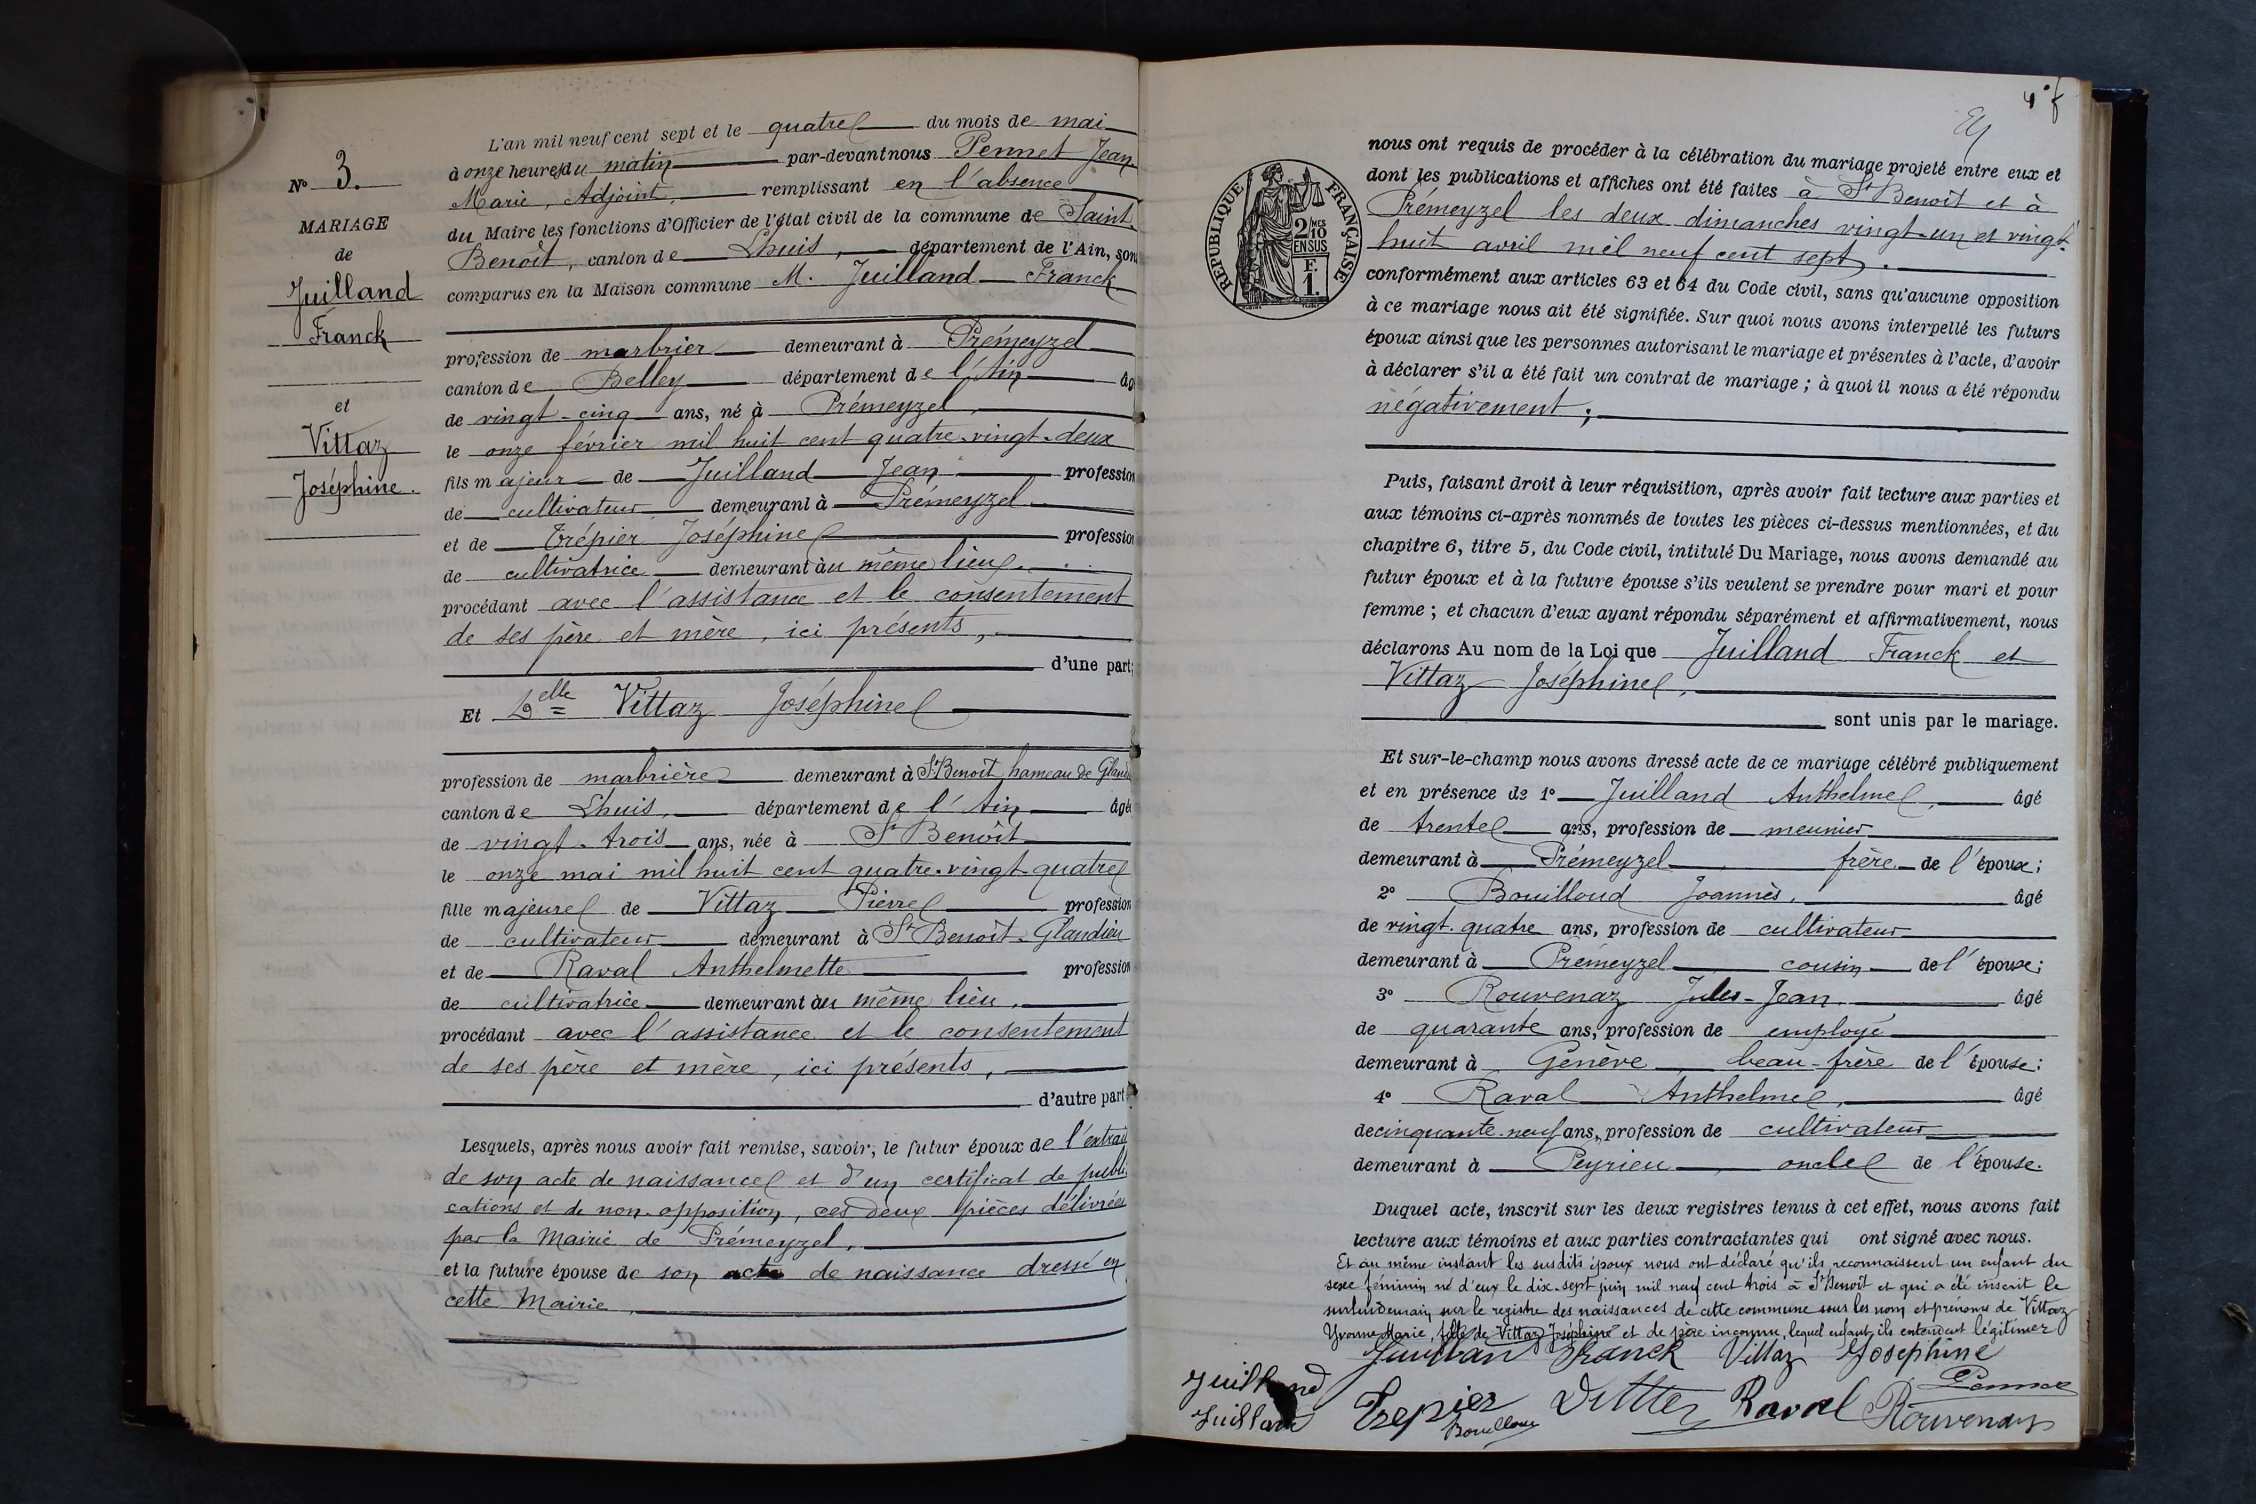 N° 3.
MARIAGE
de
Juilland
Franck
et
Vittaz
Joséphine.
L'an mil neuf cent sept et le quatre du mois de mai
à onze heures du matin par-devant nous Pennet Jean
Marie, Adjoint, remplissant en l'absence
du Maire les fonctions d'Officier de l'état civil de la commune de Saint-
Benoît, canton de Lhuis, département de l'Ain, son
comparus en la Maison commune M. Juilland Franck
profession de marbrier demeurant à Prémeyzel
canton de Belley département de l'Ain âg
de vingt-cinq ans, né à Prémeyzel,
le onze février mil huit cent quatre-vingt-deux
fils majeur de Juilland Jean profession
de cultivateur demeurant à Prémeyzel
et de Trépier Joséphine profession
de cultivatrice demeurant au même lieu.
procédant avec l'assistance et le consentement
de ses père et mère, ici présents,
d'une part;
Et Delle Vittaz Joséphine
profession de marbrière demeurant à St Benoît, hameau de Glandi
canton de Lhuis, département de l'Ain âgé
de vingt-trois ans, née à St Benoît
le onze mai mil huit cent quatre-vingt-quatre
fille majeure de Vittaz Pierre profession
de cultivateur demeurant à St Benoît-Glandieu
et de Raval Anthelmette profession
de cultivatrice demeurant au même lieu.
procédant avec l'assistance et le consentement
de ses père et mère, ici présents,
d'autre part
Lesquels, après nous avoir fait remise, savoir; le futur époux de l'extrait
de son acte de naissance et d'un certificat de publi
cations et de non-opposition, ces deux pièces délivrées
par la Mairie de Prémeyzel,
et la future épouse de son acte de naissance dressé en
cette Mairie,
RÉPUBLIQUE FRANÇAISE
2/10 MES
EN SUS
F.
1.
nous ont requis de procéder à la célébration du mariage projeté entre eux et
dont les publications et affiches ont été faites à St Benoît et à
Prémeyzel les deux dimanches vingt-un et vingt-
huit avril mil neuf cent sept.
conformément aux articles 63 et 64 du Code civil, sans qu'aucune opposition
à ce mariage nous ait été signifiée. Sur quoi nous avons interpellé les futurs
époux ainsi que les personnes autorisant le mariage et présentes à l'acte, d'avoir
à déclarer s'il a été fait un contrat de mariage; à quoi il nous a été répondu
négativement;
Puis, faisant droit à leur réquisition, après avoir fait lecture aux parties et
aux témoins ci-après nommés de toutes les pièces ci-dessus mentionnées, et du
chapitre 6, titre 5, du Code civil, intitulé Du Mariage, nous avons demandé au
futur époux et à la future épouse s'ils veulent se prendre pour mari et pour
femme; et chacun d'eux ayant répondu séparément et affirmativement, nous
déclarons Au nom de la Loi que Juilland Franck et
Vittaz Joséphine,
sont unis par le mariage.
Et sur-le-champ nous avons dressé acte de ce mariage célébré publiquement
et en présence de 1° Juilland Anthelme, âgé
de trente ans, profession de meunier
demeurant à Prémeyzel, frère de l'époux;
2° Bouilloud Joannès, âgé
de vingt-quatre ans, profession de cultivateur
demeurant à Prémeyzel, cousin de l'époux;
3° Rouvenaz Jules-Jean, âgé
de quarante ans, profession de employé
demeurant à Genève, beau-frère de l'épouse;
4° Raval Anthelme, âgé
de cinquante-neuf ans, profession de cultivateur
demeurant à Peyrieu, oncle de l'épouse.
Duquel acte, inscrit sur les deux registres tenus à cet effet, nous avons fait
lecture aux témoins et aux parties contractantes qui ont signé avec nous.
Et au même instant les susdits époux nous ont déclaré qu'ils reconnaissent un enfant du
sexe féminin né d'eux le dix-sept juin mil neuf cent trois à St Benoît et qui a été inscrit le
surlendemain sur le registre des naissances de cette commune sous les nom et prénoms de Vittaz
Yvonne Marie, fille de Vittaz Joséphine et de père inconnu, lequel enfant, ils entendent légitimer
Juilland Franck Vittaz Joséphine
Pennet
Juilland
Juilland Trepier Bouilloud Raval Rouvenaz